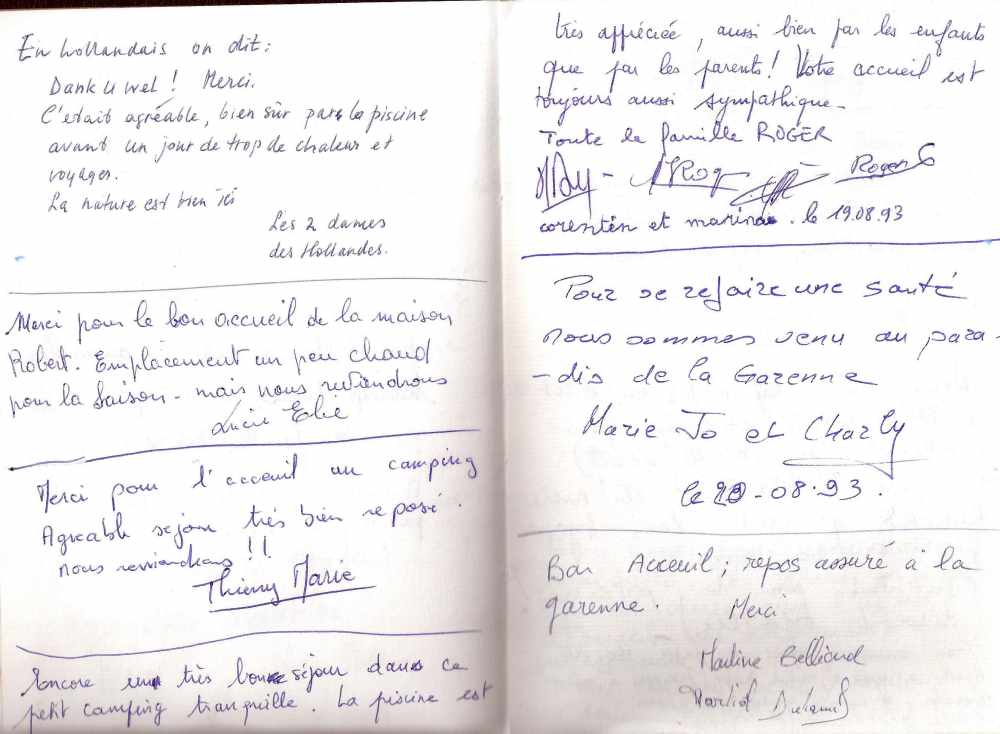 En hollandais on dit:
Dank u wel! Merci.
C'était agréable, bien sûr par la piscine
avant un jour de trop de chaleur et
voyager.
La nature est bien ici
Les 2 dames
des Hollandes.
Merci pour le bon accueil de la maison
Robert. Emplacement un peu chaud
pour la saison - mais nous reviendrons
Lucie Elie
Merci pour l'acceuil au camping
Agreable séjour très bien reposé.
nous reviendrons !!
Thierry Marie
Encore un très bon séjour dans ce
petit camping tranquille. La piscine est
très appéciée, aussi bien par les enfants
que par les parents! Votre accueil est
toujours aussi sympathique-
Toute la famille ROGER
Roger
corentin et marina. le 19.08.93
Pour se refaire une santé
nous sommes venu au para-
-dis de la Garenne
Marie Jo et Charly
le 20-08-93.
Bon Acceuil; repos assuré à la
garenne. Merci